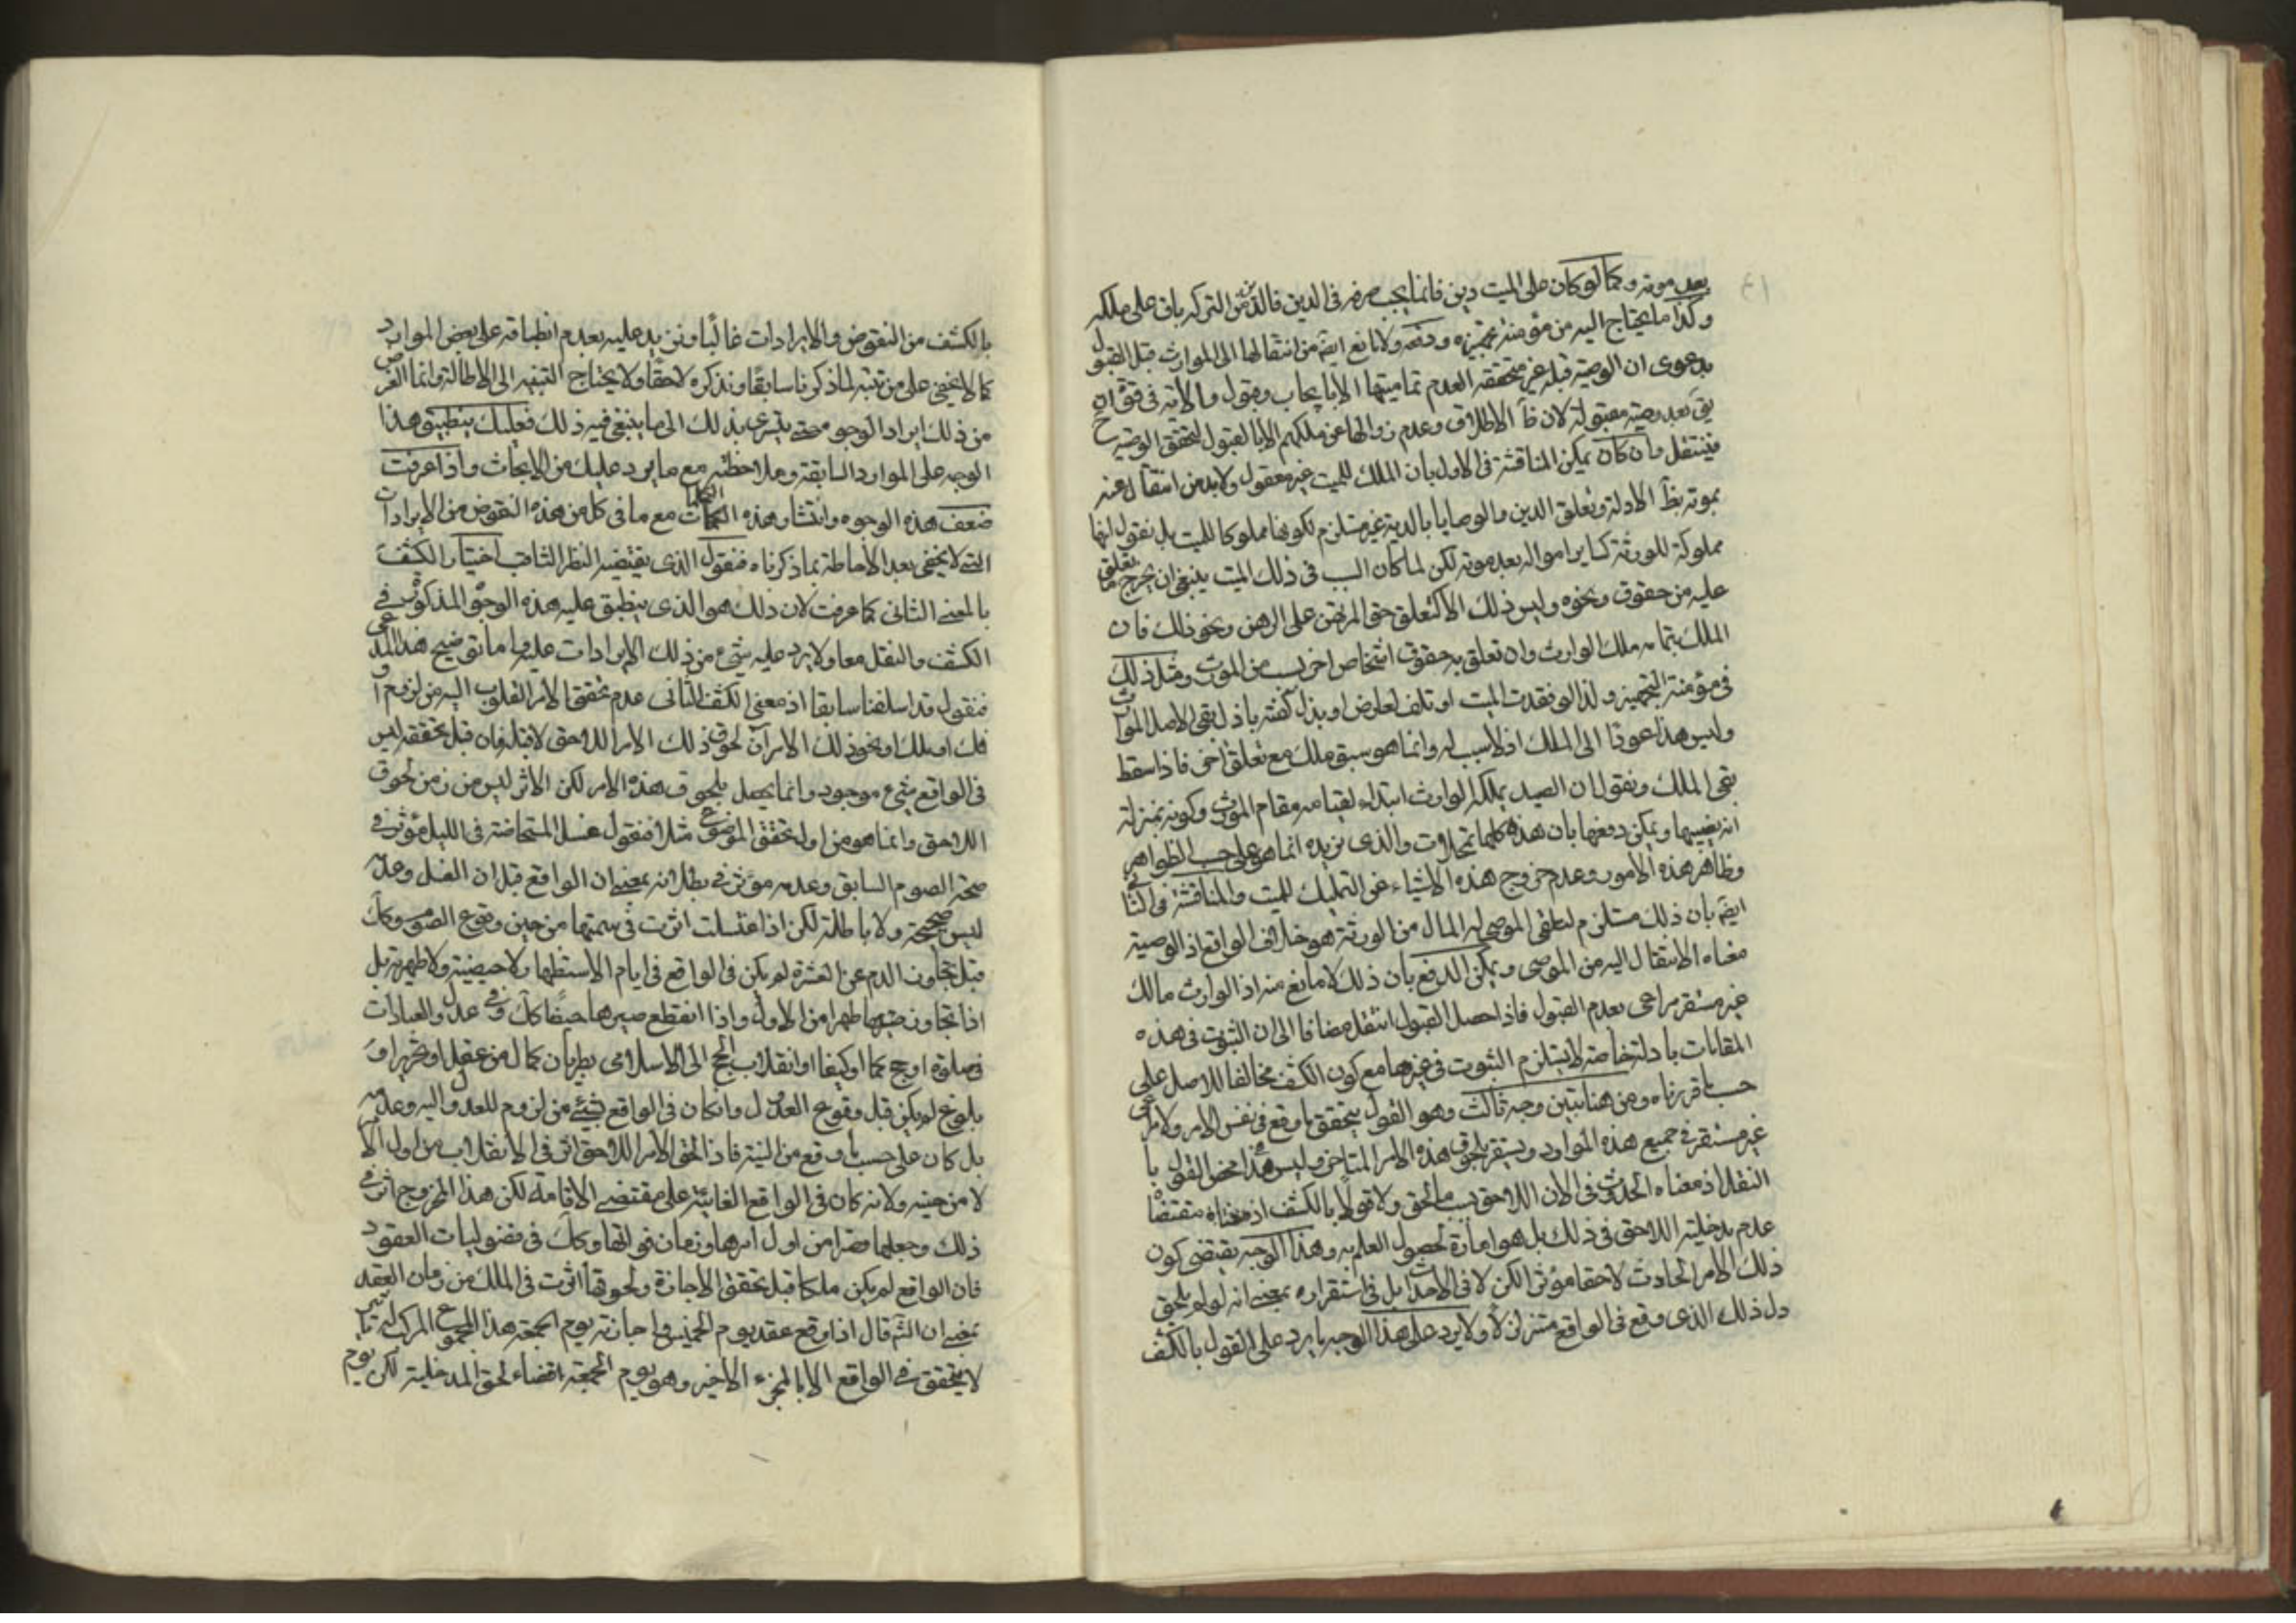 بعد موته وكما لو كان على الميت دين فانما يجب صرفه في الدين فالذمن التركه باق على ملكه
وكذا ما يحتاج اليه من مؤمنة تجهيزه ودفنه ولا مانع ايضا من انتقالها الى الموارث قبل القبول
بدعوى ان الوصية قبله غير متحققه العدم تماميتها الا بايجاب وقبول والاية في قوة ان
يق بعد وصية مقبولة لان ظ الاطلاق وعدم زوالها عن ملكهم الا بالقبول لتحقق الوصية ح
فينتقل وان كان يمكن المناقشة في الاول بان الملك للميت غير معقول ولابد من انتقال عنه
بموته بظ الادلة وتعلق الدين والوصايا بالدية غير مستلزم لكونها مملوكا للميت بل نقول انها
مملوكة للورثة كساير امواله بعد موته لكن لما كان السبب في ذلك الميت ينبغي ان يخرج ما تعلق
عليه من حقوق ونحوه وليس ذلك الا كتعلق حق المرتهن على الرهن ونحو ذلك فان
الملك بتمامه ملك الوارث وان تعلق به حقوق اشخاص اخر بسبب من الموت ومثل ذلك
في مؤمنة التجهيز ولذا لو فقدت الميت او تلف لعارض او بذل كفنه باذل بقى لاصل الموارث
وليس هذا عودا الى الملك اذ لا سبب له وانما هو سبق ملك مع تعلق اخر فاذا سقط
بقى الملك ونقول ان الصيد يملكه الوارث ابتداء لقيامه مقام المورث وكونه بمنزلة
انه نصيبها ويمكن دفعها بان هذه كلها تمحلات والذي نريده انما هو على حسب الظواهر
وظاهر هذه الامور وعدم خروج هذه الاشياء عن التمليك للميت والمناقشة في الثاني
ايضا بان ذلك مستلزم لتلقى الموصى له المال من الورثة وهو خلاف الواقع اذ الوصية
معناه الانتقال اليه من الموصى ويمكن الدفع بان ذلك لا مانع منه اذ الوارث مالك
غير مستقر مراعى بعدم القبول فاذا حصل القبول انتقل مضافا الى ان الثبوت في هذه
المقامات بادلة خاصة لا يستلزم الثبوت في غيرها مع كون الكشف مخالفا للاصل على
حسب ما قررناه ومن هنا تبين وجه ثالث وهو القول بتحقق ما وقع في نفس الامر ولا مراعى
غير مستقر في جميع هذه الموارد ويستقر بلحوق هذه الامر المتاخر وليس هذا محض القول با
النقل اذ معناه الحدوث في الان اللاحق بسبب ما لحق ولا قولا بالكشف اذ معناه مقتضا
عدم مدخلية اللاحق في ذلك بل هو امارة لحصول العلم به وهذا الوجه يقتضى كون
ذلك الامر الحادث لاحقا مؤثرا لكن لا في الاحداث بل في استقراره بمعنى انه لو لم يلحق
دل ذلك الذي وقع في الواقع متزلزلا ولا يرد على هذا الوجه ما يرد على القول بالكشف
بالكشف من النقوض والايرادات غالبا ونزيد عليه بعدم انطباقه على بعض الموارد
كما لا يخفى على من تنبه لما ذكرنا سابقا ونذكره لاحقا ولا يحتاج التنبه الى الاطالة وانما الغرض
من ذلك ايراد الوجوه حتى يسرى بذلك الى ما ينبغي فيه ذلك فعليك بتطبيق هذا
الوجه على الموارد السابقة وملاحظته مع ما يرد عليك من الابحاث واذا عرفت
ضعف هذه الوجوه وانتشار هذه الكلمات مع ما في كل من هذه النقوض من الايرادات
التي لا يخفى بعد الاحاطة بما ذكرناه فنقول الذي يقتضيه النظر الثاقب اختيار الكشف
بالمعنى الثاني كما عرفت لان ذلك هو الذي ينطبق عليه هذه الوجوه المذكورة في
الكشف والنقل معا ولا يرد عليه شيء من ذلك الايرادات عليهما واما توضيح هذا المدعى
فنقول قد اسلفنا سابقا اذ معنى الكشف الثاني عدم تحقق الامر المقلوب اليه من لزوم او
فك او ملك او نحو ذلك الا من آن لحوق ذلك الامر اللاحق لا قبله فان قبل تحققه ليس
في الواقع شيء موجود وانما يحصل بلحوق هذه الامر لكن الاثر ليس من زمن لحوق
اللاحق وانما هو من اول تحقق الموضوع مثلا فنقول غسل المستحاضة في الليل مؤثر في
صحة الصوم السابق وعدمه مؤثر في بطلانه بمعنى ان الواقع قبل ان الغسل وعدمه
ليس صحيحة ولا باطلة لكن اذا غتسلت اثرت في سمتها من حين وقوع الصوم وكك
قبل تجاوز الدم عن العشرة لم يكن في الواقع في ايام الاستظهار لا حيضية ولا طهرية بل
اذا تجاوز صيرها طهرا من الاول واذا انقطع صيرها حيضا كك وفي عدل والعبادات
في صلوة او حج كما او كيفا او انقلاب الحج الى الاسلامى بطريان كمال من عقل او تحرير او
بلوغ لم يكن قبل وقوع العدول وما كان في الواقع شيء من لزوم للعدول اليه وعدمه
بل كان على حسب ما وقع من النية فاذا لحق الامر اللاحق اثر في الانقلاب من اول الامر
لا من حينه ولا نه كان في الواقع الغائبة على مقتضى الاقامة لكن هذا الخروج اثر في
ذلك وجعلها مضرا من اول امرها وزمان فواتها وكك في فضوليات العقود
فان الواقع لم يكن ملكا قبل تحقق الاجازة ولحوقها اثرت في الملك من زمان العقد
بمعنى ان الشم قال اذا وقع عقد يوم الخميس واجازته يوم الجمعة هذا المجموع المركب له تاثير
لا يتحقق في الواقع الا بالجزء الاخير وهو يوم الجمعة اقتضاء لحق المدخلية لكن يوم